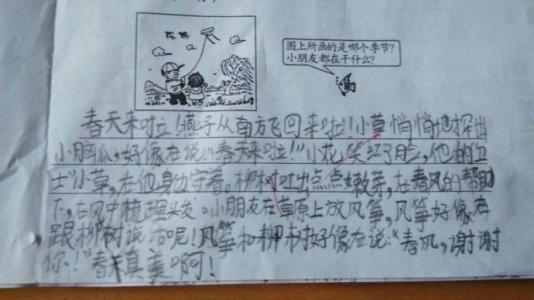 图上所画的是哪个季节?
小朋友都在干什么?
春天来啦!燕子从南方飞回来啦!小草悄悄地探出
小脑瓜,好像在说:"春天来啦!"小花笑红了脸,他的卫
士"小草,在他身边守着。柳树吐出点点嫩芽,在春风的帮助
下,在风中梳理头发。小朋友在草原上放风筝,风筝好像在
跟柳树说话呢!风筝和柳树好像在说:"春风,谢谢
你!"春天真美啊!